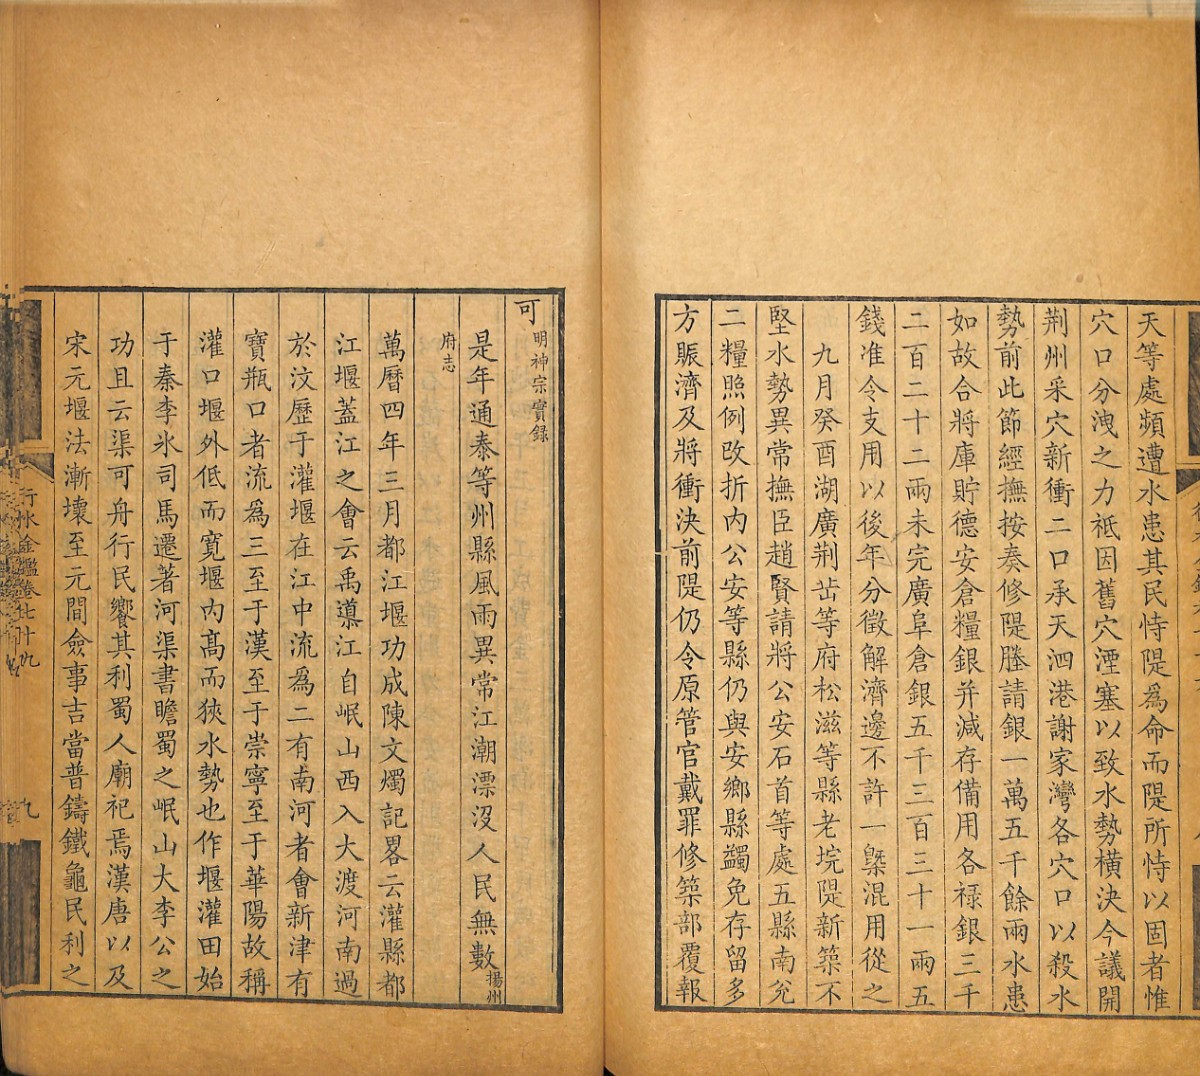 天等處頻遭水患其民恃隄爲命而隄所恃以固者惟
穴口分洩之力祗因舊穴湮塞以致水勢橫決今議開
荆州采穴新衝二口承天泗港謝家灣各穴口以殺水
勢前此節經撫按奏修隄塍請銀一萬五千餘兩水患
如故合將庫貯德安倉糧銀并減存備用各禄銀三千
二百二十二兩未完廣阜倉銀五千三百三十一兩五
錢准令支用以後年分徵解濟邊不許一槩混用從之
九月癸酉湖廣荆岳等府松滋等縣老垸隄新築不
堅水勢異常撫臣趙賢請將公安石首等處五縣南兌
二糧照例改折内公安等縣仍與安鄉縣蠲免存留多
方賑濟及將衝決前隄仍令原管官戴罪修築部覆報
可明神宗實錄
是年通泰等州縣風雨異常江潮漂沒人民無數揚州
府志
萬曆四年三月都江堰功成陳文燭記畧云灌縣都
江堰蓋江之會云禹導江自岷山西入大渡河南過
於汶歷于灌堰在江中流爲二有南河者會新津有
寶瓶口者流爲三至于漢至于崇寧至于華陽故稱
灌口堰外低而寬堰内高而狹水勢也作堰灌田始
于秦李氷司馬遷著河渠書瞻蜀之岷山大李公之
功且云渠可舟行民饗其利蜀人廟祀焉漢唐以及
宋元堰法漸壞至元間僉事吉當普鑄鐵龜民利之
行水金鑑卷七十九
九